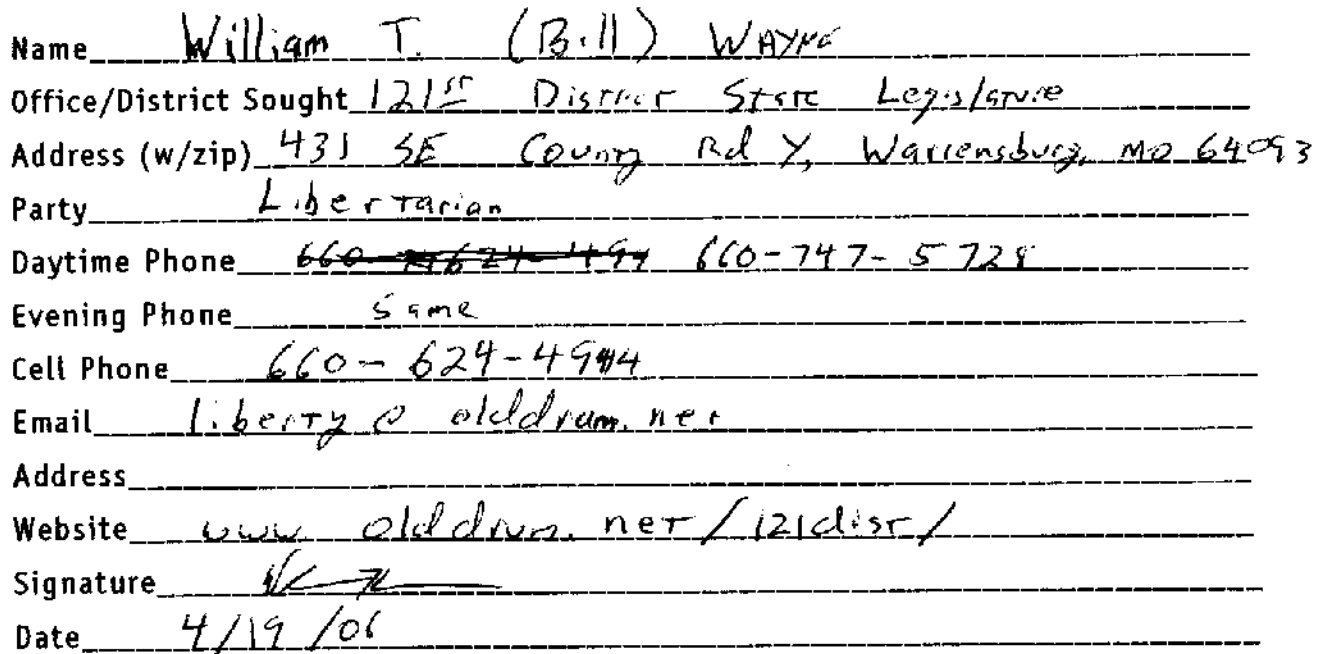 Name William T. (Bill) WAYNE
Office/District Sought 121st District State Legislature
Address (w/zip) 431 SE County Rd Y, Warrensburg, MO 64093
Party Libertarian
Daytime Phone 660-747-5728
Evening Phone same
Cell Phone 660-624-4944
Email liberty@olddrum.net
Address
Website www.olddrum.net/121dist/
Signature
Date 4/19/06